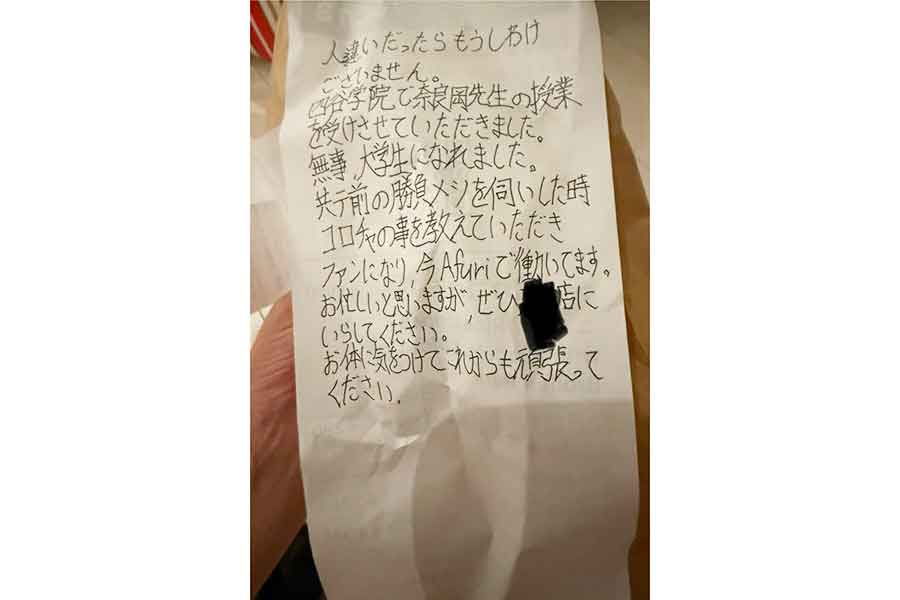 人違いだったらもうしわけ
ございません。
四谷学院で奈良岡先生の授業
を受けさせていただきました。
無事、大学生になれました。
共テ前の勝負メシを伺いした時
コロチャの事を教えていただき
ファンになり、今Afuriで働いてます。
お忙しいと思いますが、ぜひ店に
いらしてください。
お体に気をつけてこれからも頑張って
ください。